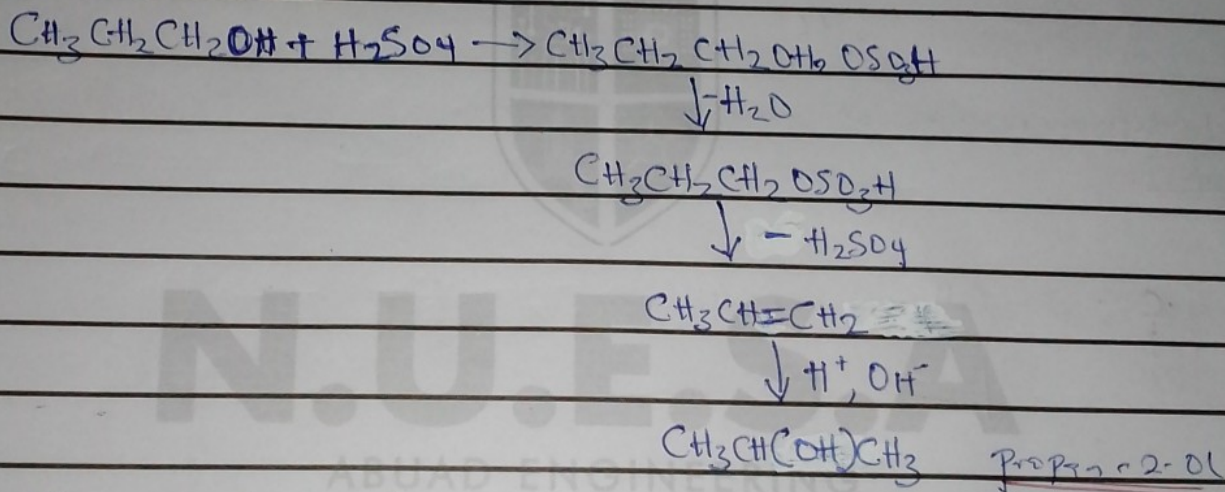 CH3CH2CH2OH + H2SO4 → CH3CH2CH2OH2 OSO3H
↓ -H2O
CH3CH2CH2OSO3H
↓ - H2SO4
CH3CH=CH2
↓ H+, OH-
CH3CH(OH)CH3 Propan-2-OL
N.U.E.S.A
ABUAD ENGINEERING